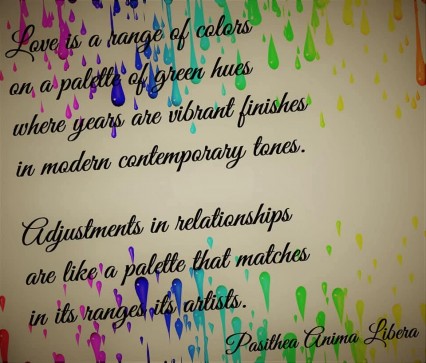 Love is a range of colors
on a palette of green hues
where years are vibrant finishes
in modern contemporary tones.
Adjustments in relationships
are like a palette that matches
in its ranges its artists.
Pasithea Anima Libera